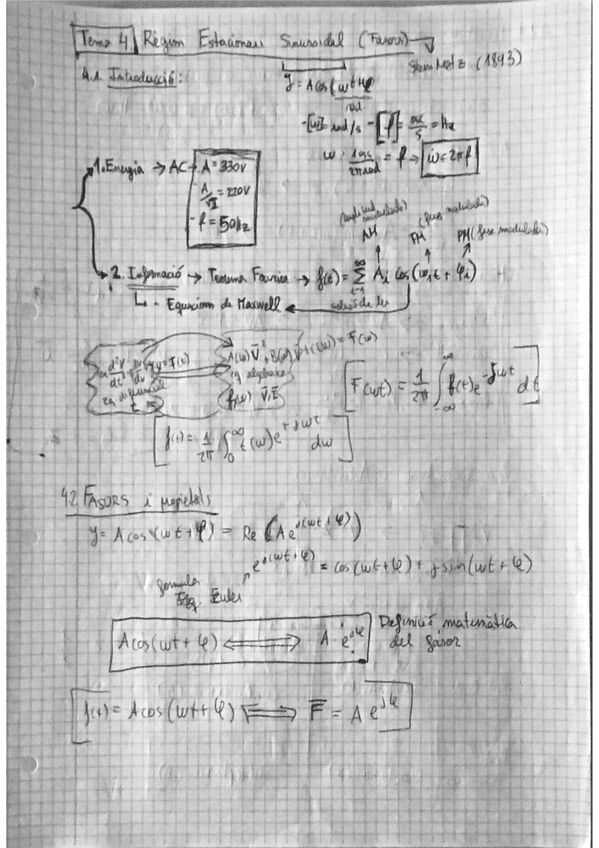 Tema 4 Règim Estacionari Sinusoidal (Fasors)
Steinmetz (1893)
4.1. Introducció:
y = A cos(wt+φ)
rad.
-[w] = rad/s - [f] = osc/s = Hz
w · 1osc/2πrad = f ⇒ w = 2πf
1. Energia → AC → A = 330V
- A/√2 = 220V
- f = 50Hz
(amplitud modulada) (freq modulada)
AM FM PM (fase modulada)
2. Informació → Teorema Fourier → f(t) = ∑ i=1 ∞ Ai cos(wit + φi)
↳ - Equacions de Maxwell ← solució de les
A(w)V̄² + B(w)V̄ + C(w) = F(w)
eq diferencial
eq algebraica
f(w) V̄, Ī
F(wt) = 1/2π ∫-∞ ∞ f(t)e^-jwt dt
f(t) = 1/2π ∫0 ∞ f(w)e^+jwt dw
4.2 FASORS i propietats
y = A cos(wt + φ) = Re (A e^j(wt+φ))
e^j(wt+φ) = cos(wt+φ) + j sin(wt+φ)
formula
Euler
A cos(wt + φ) ⟺ A · e^jφ
Definició matemàtica
del fasor
f(t) = A cos(wt+φ) ⟺ F̄ = A e^jφ